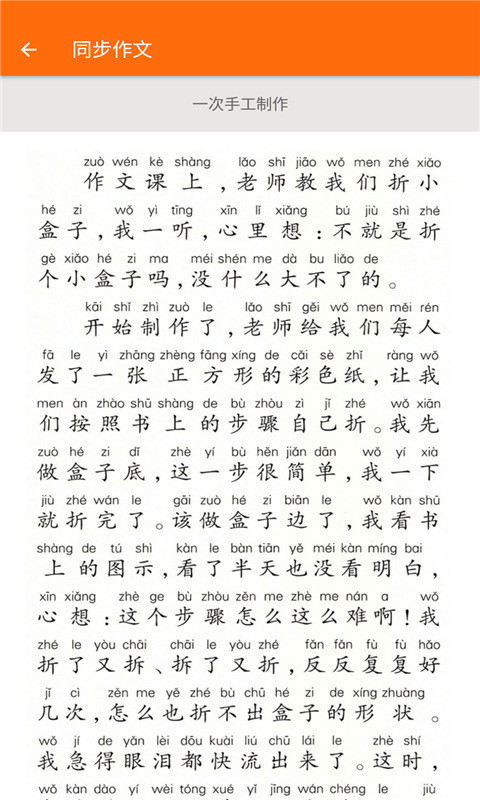 同步作文
一次手工制作
zuò wén kè shàng lǎo shī jiāo wǒ men zhé xiǎo
作文课上，老师教我们折小
hé zi wǒ yì tīng xīn lǐ xiǎng bú jiù shì zhé
盒子，我一听，心里想：不就是折
gè xiǎo hé zi ma méi shén me dà bu liǎo de
个小盒子吗，没什么大不了的。
kāi shǐ zhì zuò le lǎo shī gěi wǒ men měi rén
开始制作了，老师给我们每人
fā le yì zhāng zhèng fāng xíng de cǎi sè zhǐ ràng wǒ
发了一张正方形的彩色纸，让我
men àn zhào shū shàng de bù zhòu zì jǐ zhé wǒ xiān
们按照书上的步骤自己折。我先
zuò hé zi dǐ zhè yí bù hěn jiǎn dān wǒ yí xià
做盒子底，这一步很简单，我一下
jiù zhé wán le gāi zuò hé zi biān le wǒ kàn shū
就折完了。该做盒子边了，我看书
shàng de tú shì kàn le bàn tiān yě méi kàn míng bai
上的图示，看了半天也没看明白，
xīn xiǎng zhè ge bù zhòu zěn me zhè me nán a wǒ
心想：这个步骤怎么这么难啊！我
zhé le yòu chāi chāi le yòu zhé fǎn fǎn fù fù hǎo
折了又拆、拆了又折，反反复复好
jǐ cì zěn me yě zhé bù chū hé zi de xíng zhuàng
几次，怎么也折不出盒子的形状。
wǒ jí de yǎn lèi dōu kuài liú chū lái le zhè shí
我急得眼泪都快流出来了。这时，
wǒ kàn dào yí wèi tóng xué yǐ jīng wán chéng le jiù